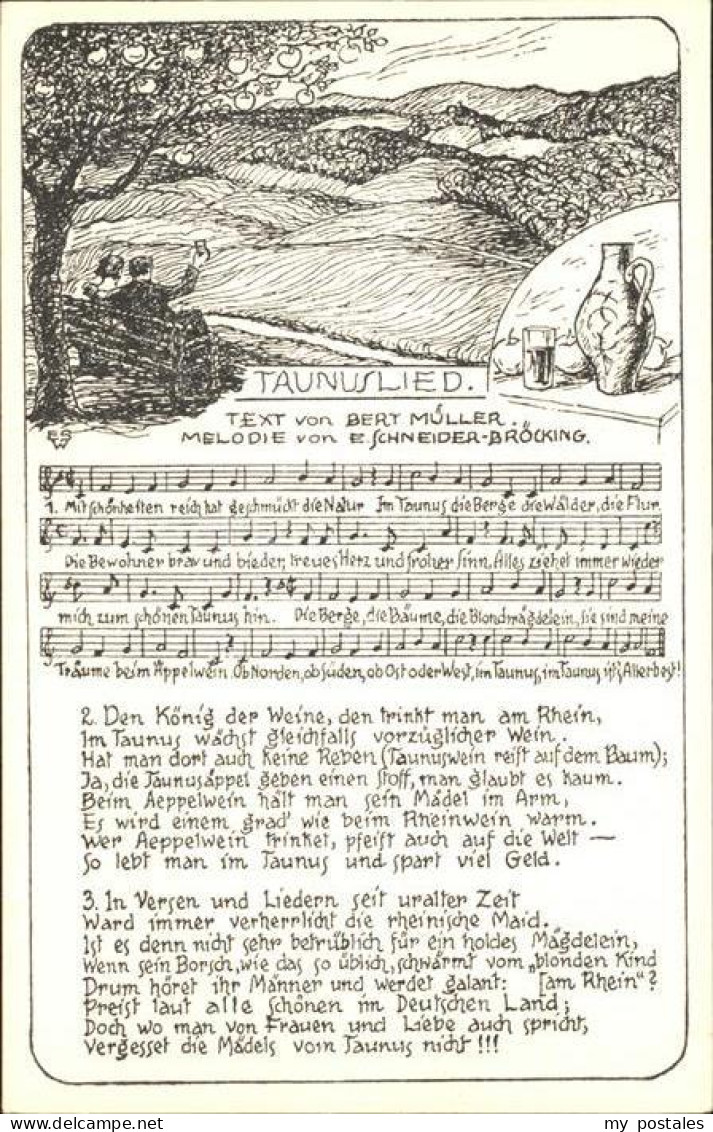 TAUNUSLIED.
TEXT von BERT MÜLLER.
MELODIE von E. SCHNEIDER-BRÖCKING.
ESW
1. Mit Schönheiten reich hat geschmückt die Natur Im Taunus die Berge die Wälder, die Flur.
Die Bewohner brav und bieder, treues Herz und froher Sinn, Alles ziehet immer wieder
mich zum schönen Taunus hin. Die Berge, die Bäume, die Blondmägdelein, sie sind meine
Träume beim Äppelwein. Ob Norden, ob Süden, ob Ost oder West, im Taunus, im Taunus ist's Allerbest!
2. Den König der Weine, den trinkt man am Rhein,
Im Taunus wächst gleichfalls vorzüglicher Wein.
Hat man dort auch keine Reben (Taunuswein reift auf dem Baum);
Ja, die Taunusäppel geben einen Stoff, man glaubt es kaum.
Beim Aeppelwein hält man sein Mädel im Arm,
Es wird einem grad' wie beim Rheinwein warm.
Wer Aeppelwein trinket, pfeift auch auf die Welt —
So lebt man im Taunus und spart viel Geld.
3. In Versen und Liedern seit uralter Zeit
Ward immer verherrlicht die rheinische Maid.
Ist es denn nicht sehr betrüblich für ein holdes Mägdelein,
Wenn sein Borsch, wie das so üblich, schwärmt vom „blonden Kind
Drum höret ihr Männer und werdet galant: [am Rhein"?
Preist laut alle Schönen im Deutschen Land;
Doch wo man von Frauen und Liebe auch spricht,
Vergesset die Mädels vom Taunus nicht!!!
my postales